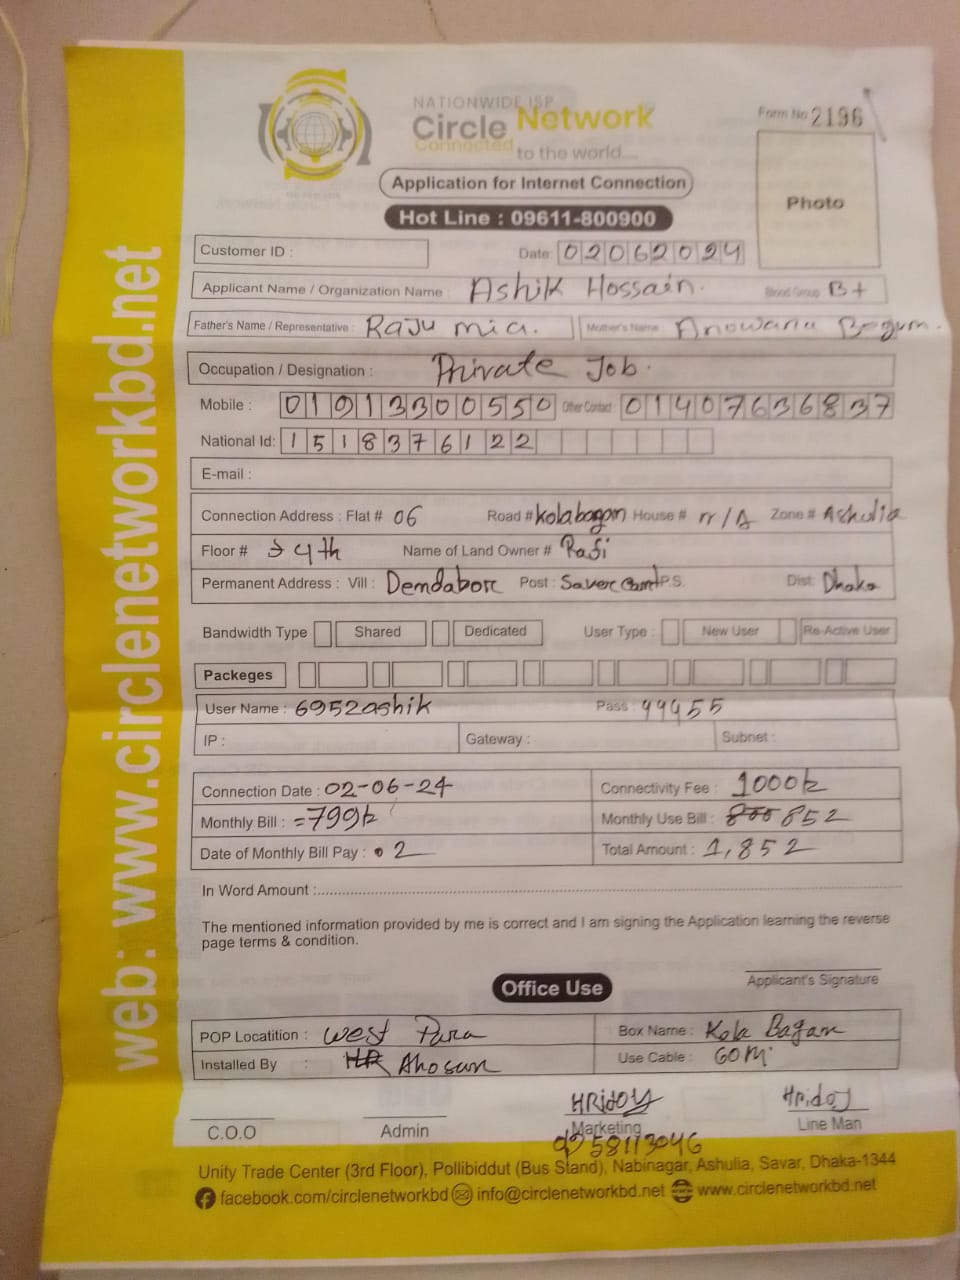 NATIONWIDE ISP
Circle Network
Connected to the world....
Form No 2196
Photo
Application for Internet Connection
Hot Line : 09611-800900
Customer ID :
Date: 02062024
Applicant Name / Organization Name : Ashik Hossain. Blood Group B+
Father's Name / Representative : Raju mia. Mother's Name : Anowara Begum.
Occupation / Designation : Private Job.
Mobile : 01913300550 Other Contact 01407636837
National Id: 1518376122
E-mail :
Connection Address : Flat # 06 Road # Kolabagan House # n/A Zone # Ashulia
Floor # 4th Name of Land Owner # Rafi
Permanent Address : Vill : Demdabor Post : Saver Cant P.S. Dist: Dhaka
Bandwidth Type Shared Dedicated User Type : New User Re-Active User
Packeges
User Name : 6952ashik Pass : 99455
IP : Gateway : Subnet :
Connection Date : 02-06-24 Connectivity Fee : 1000
Monthly Bill : =799 Monthly Use Bill : 852
Date of Monthly Bill Pay : 2 Total Amount : 1,852
In Word Amount :
The mentioned information provided by me is correct and I am signing the Application learning the reverse
page terms & condition.
Applicant's Signature
Office Use
POP Locatition : West Para Box Name : Kola Bagan
Installed By : Ahosan Use Cable : 60 m
HRidoy Hridoy
C.O.O Admin Marketing Line Man
58113046
Unity Trade Center (3rd Floor), Pollibiddut (Bus Stand), Nabinagar, Ashulia, Savar, Dhaka-1344
facebook.com/circlenetworkbd info@circlenetworkbd.net www.circlenetworkbd.net
web: www.circlenetworkbd.net